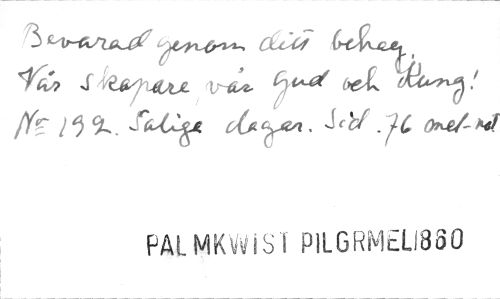 Bevarad genom ditt behag,
Vår skapare, vår Gud och Kung!
No 192. Salige dagar. Sid. 76 mel-not
PALMKWIST PILGRMEL1860